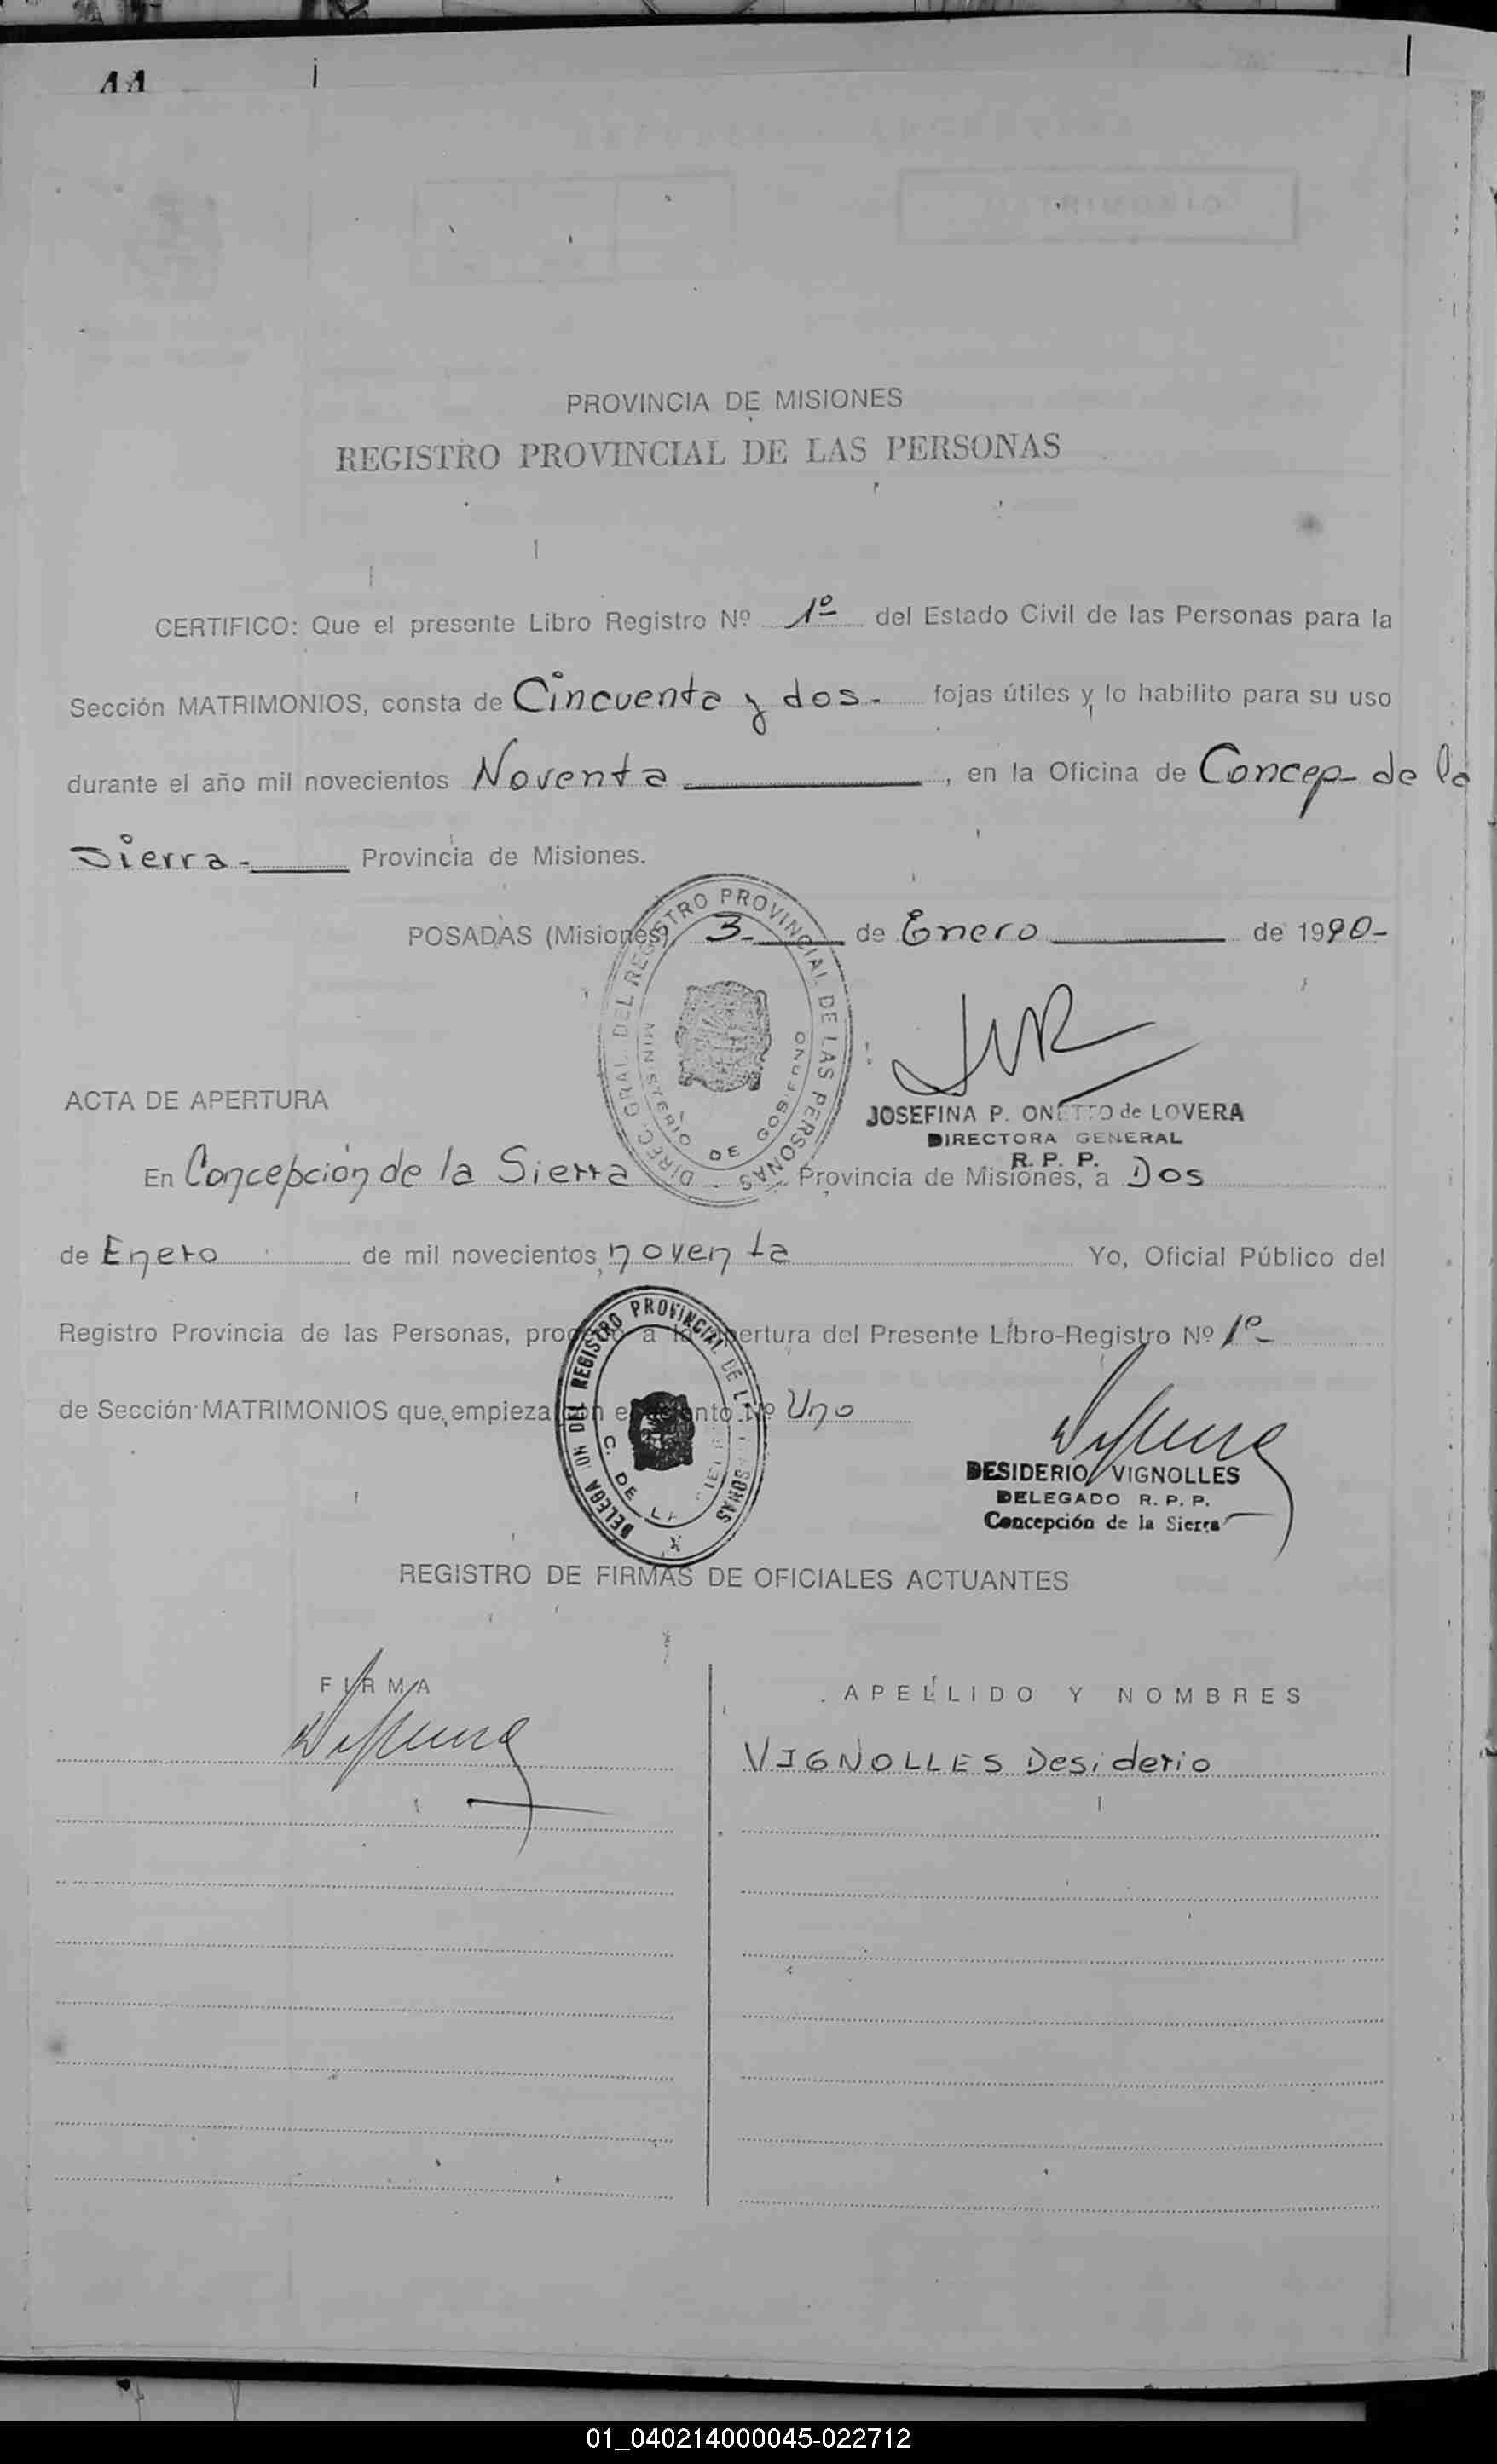 11
PROVINCIA DE MISIONES
REGISTRO PROVINCIAL DE LAS PERSONAS
CERTIFICO: Que el presente Libro Registro Nº 1º del Estado Civil de las Personas para la
Sección MATRIMONIOS, consta de Cincuenta y dos.- fojas útiles y lo habilito para su uso
durante el año mil novecientos Noventa, en la Oficina de Concep- de la
Sierra.- Provincia de Misiones.
POSADAS (Misiones), 3- de Enero de 1990-
DIREC. GRAL. DEL REGISTRO PROVINCIAL DE LAS PERSONAS
MINISTERIO DE GOBIERNO
JOSEFINA P. ONETTO de LOVERA
DIRECTORA GENERAL
R. P. P.
ACTA DE APERTURA
En Concepción de la Sierra Provincia de Misiones, a Dos
de Enero de mil novecientos noventa Yo, Oficial Público del
Registro Provincia de las Personas, procedo a la apertura del Presente Libro-Registro Nº 1º-
de Sección MATRIMONIOS que empieza con el asiento Nº Uno
DELEGACION DEL REGISTRO PROVINCIAL DE LAS PERSONAS
C. DE LA SIERRA
DESIDERIO VIGNOLLES
DELEGADO R. P. P.
Concepción de la Sierra
REGISTRO DE FIRMAS DE OFICIALES ACTUANTES
FIRMA APELLIDO Y NOMBRES
VIGNOLLES Desiderio
01_040214000045-022712